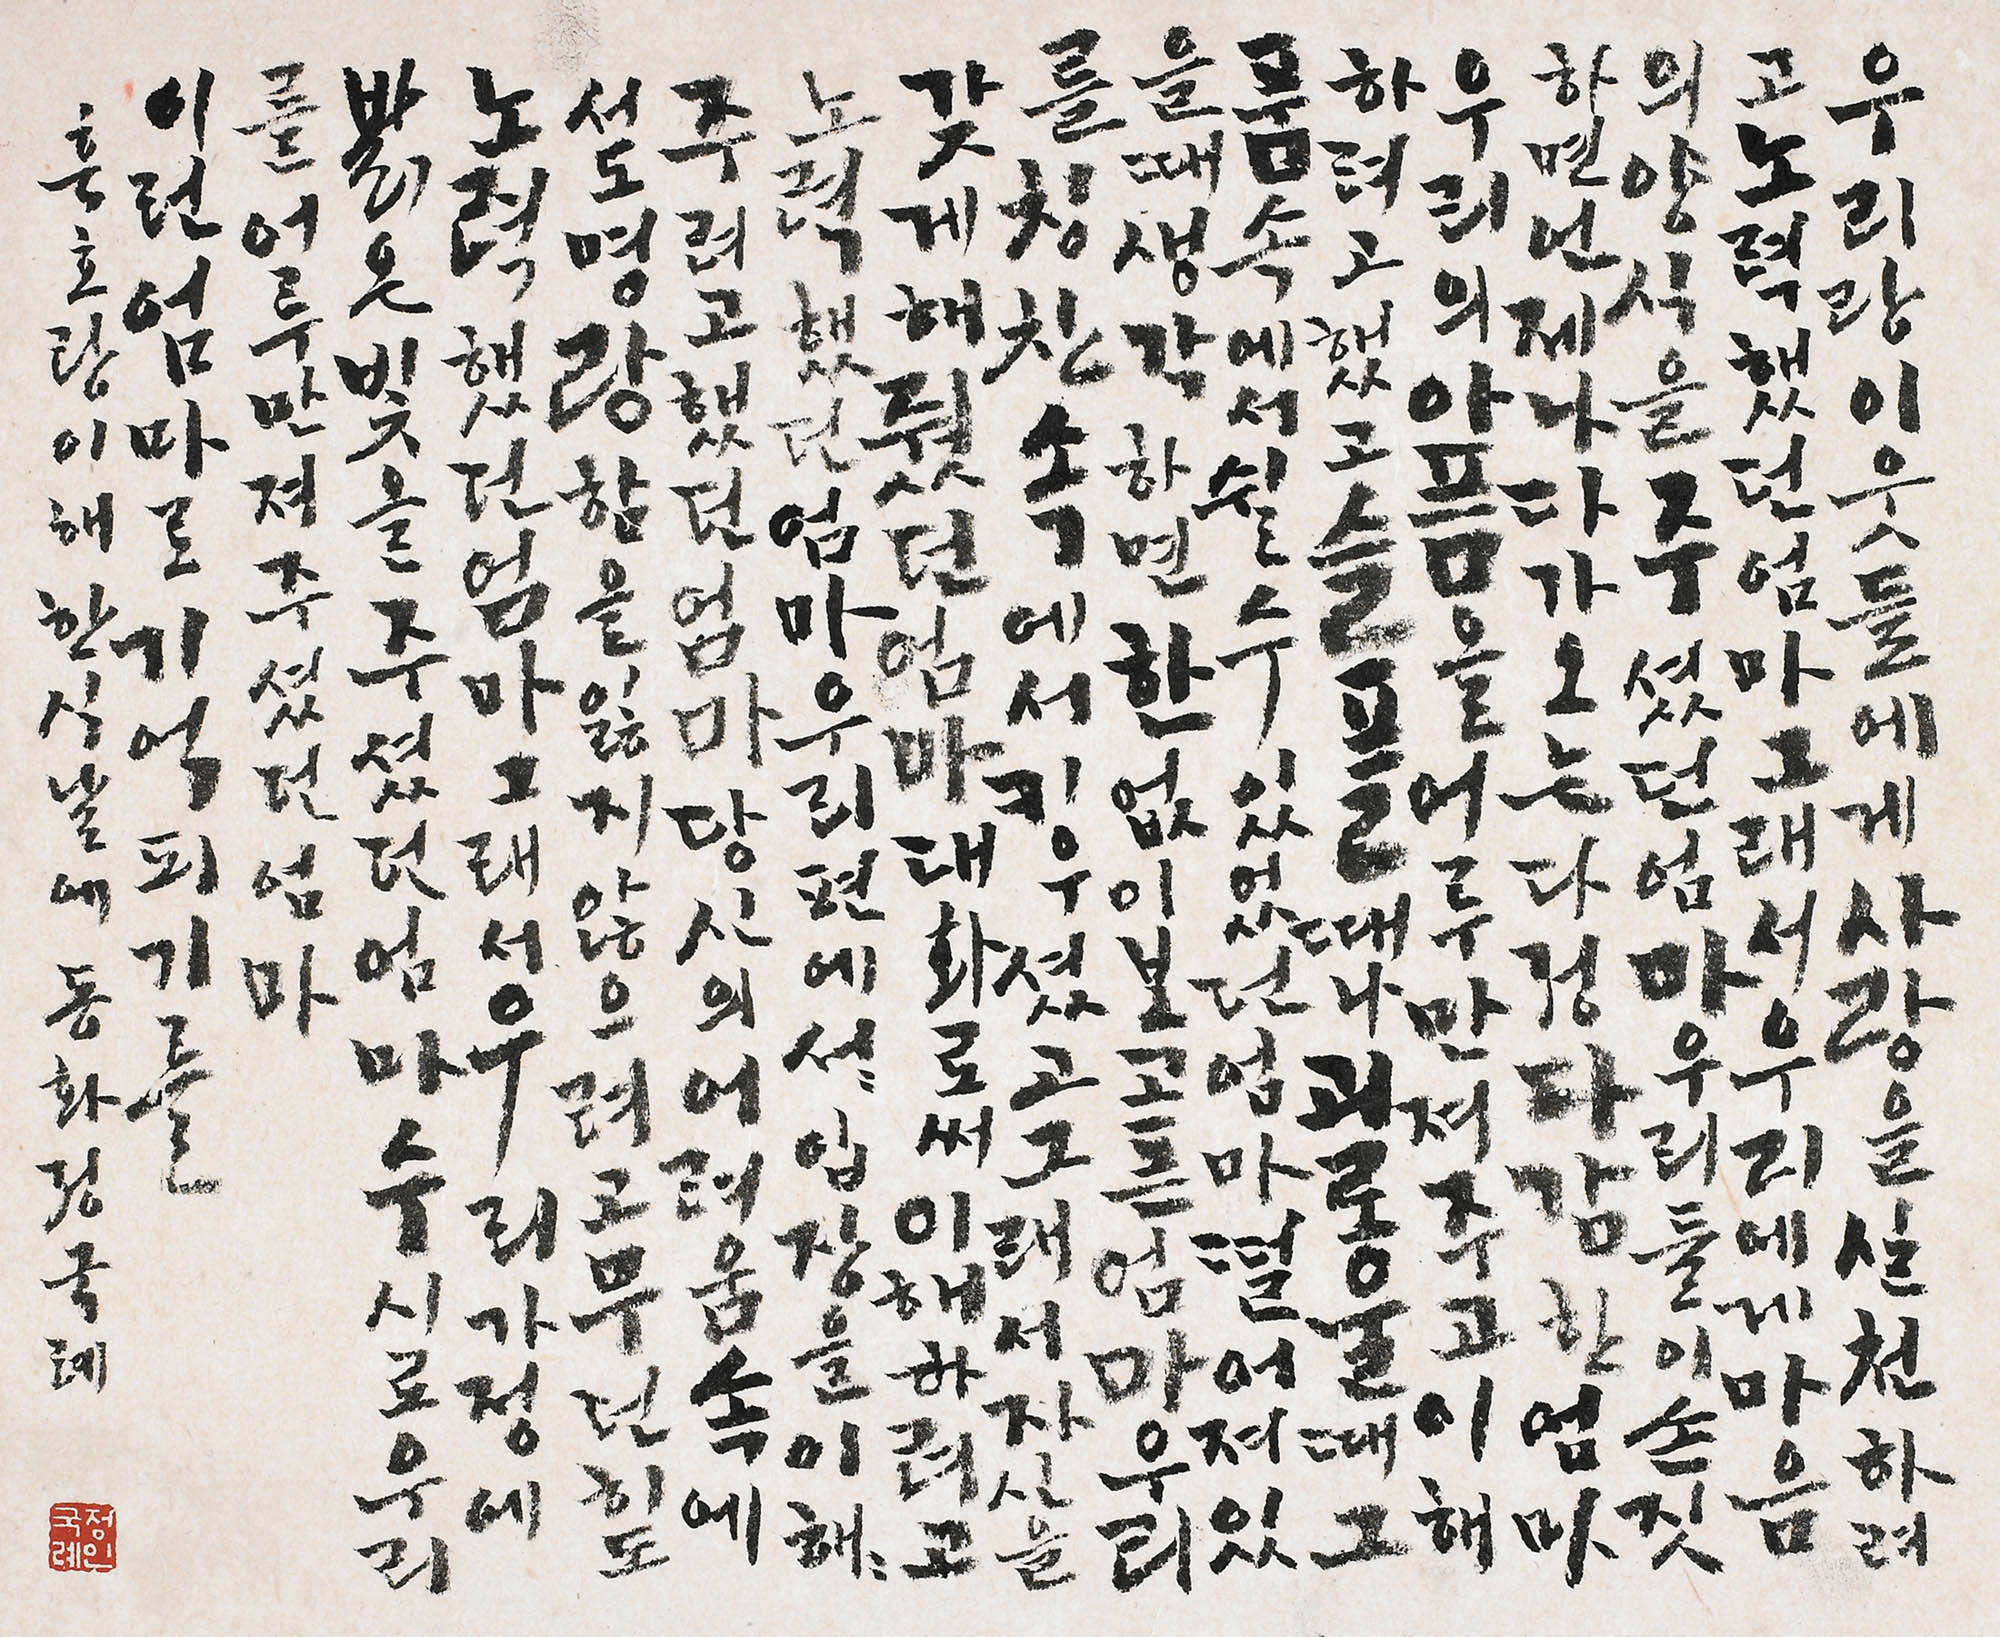 우리랑이웃들에게사랑을실천하려
고노력했던엄마그래서우리에게마음
의양식을주셨던엄마우리들이손짓
하면언제나다가오는다정다감한엄마
우리의아픔을어루만져주고이해
하려고했고슬플때나괴로울때그
품속에서쉴수있었던엄마떨어져있
을때생각하면한없이보고픈엄마우리
를칭찬속에서키우셨고그래서자신을
갖게해줬던엄마대화로써이해하려고
노력했던엄마우리편에서입장을이해
주려고했던엄마당신의어려움속에
서도명랑함을잃지않으려고무던히도
노력했던엄마그래서우리가정에
밝은빛을주셨던엄마수시로우리
를어루만져주셨던엄마
이런엄마로기억되기를
흑호랑이해한식날에동화정국례
정인
국례